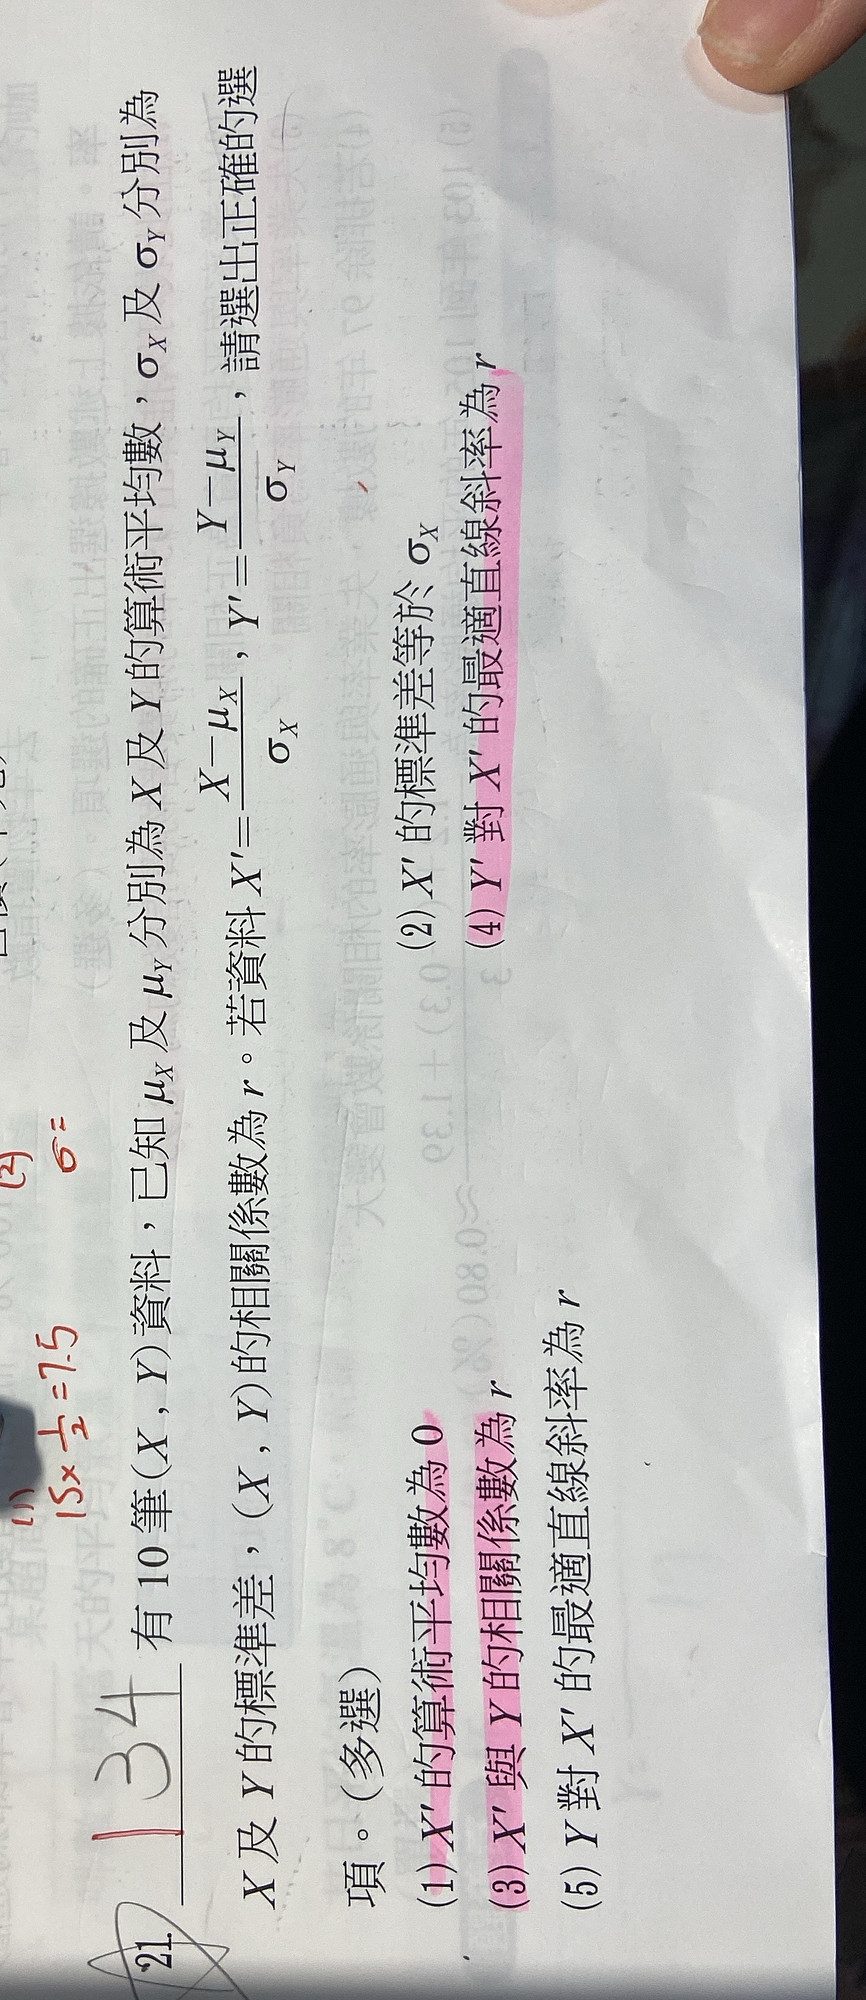 (1)
15×1/2=7.5
(2)
σ=
21. 134 有 10 筆(X,Y)資料,已知 μX 及 μY 分別為 X 及 Y 的算術平均數,σX 及 σY 分別為
X 及 Y 的標準差,(X,Y)的相關係數為 r。若資料 X'=(X-μX)/σX,Y'=(Y-μY)/σY,請選出正確的選
項。(多選)
(1) X' 的算術平均數為 0 (2) X' 的標準差等於 σX
(3) X' 與 Y 的相關係數為 r (4) Y' 對 X' 的最適直線斜率為 r
(5) Y 對 X' 的最適直線斜率為 r